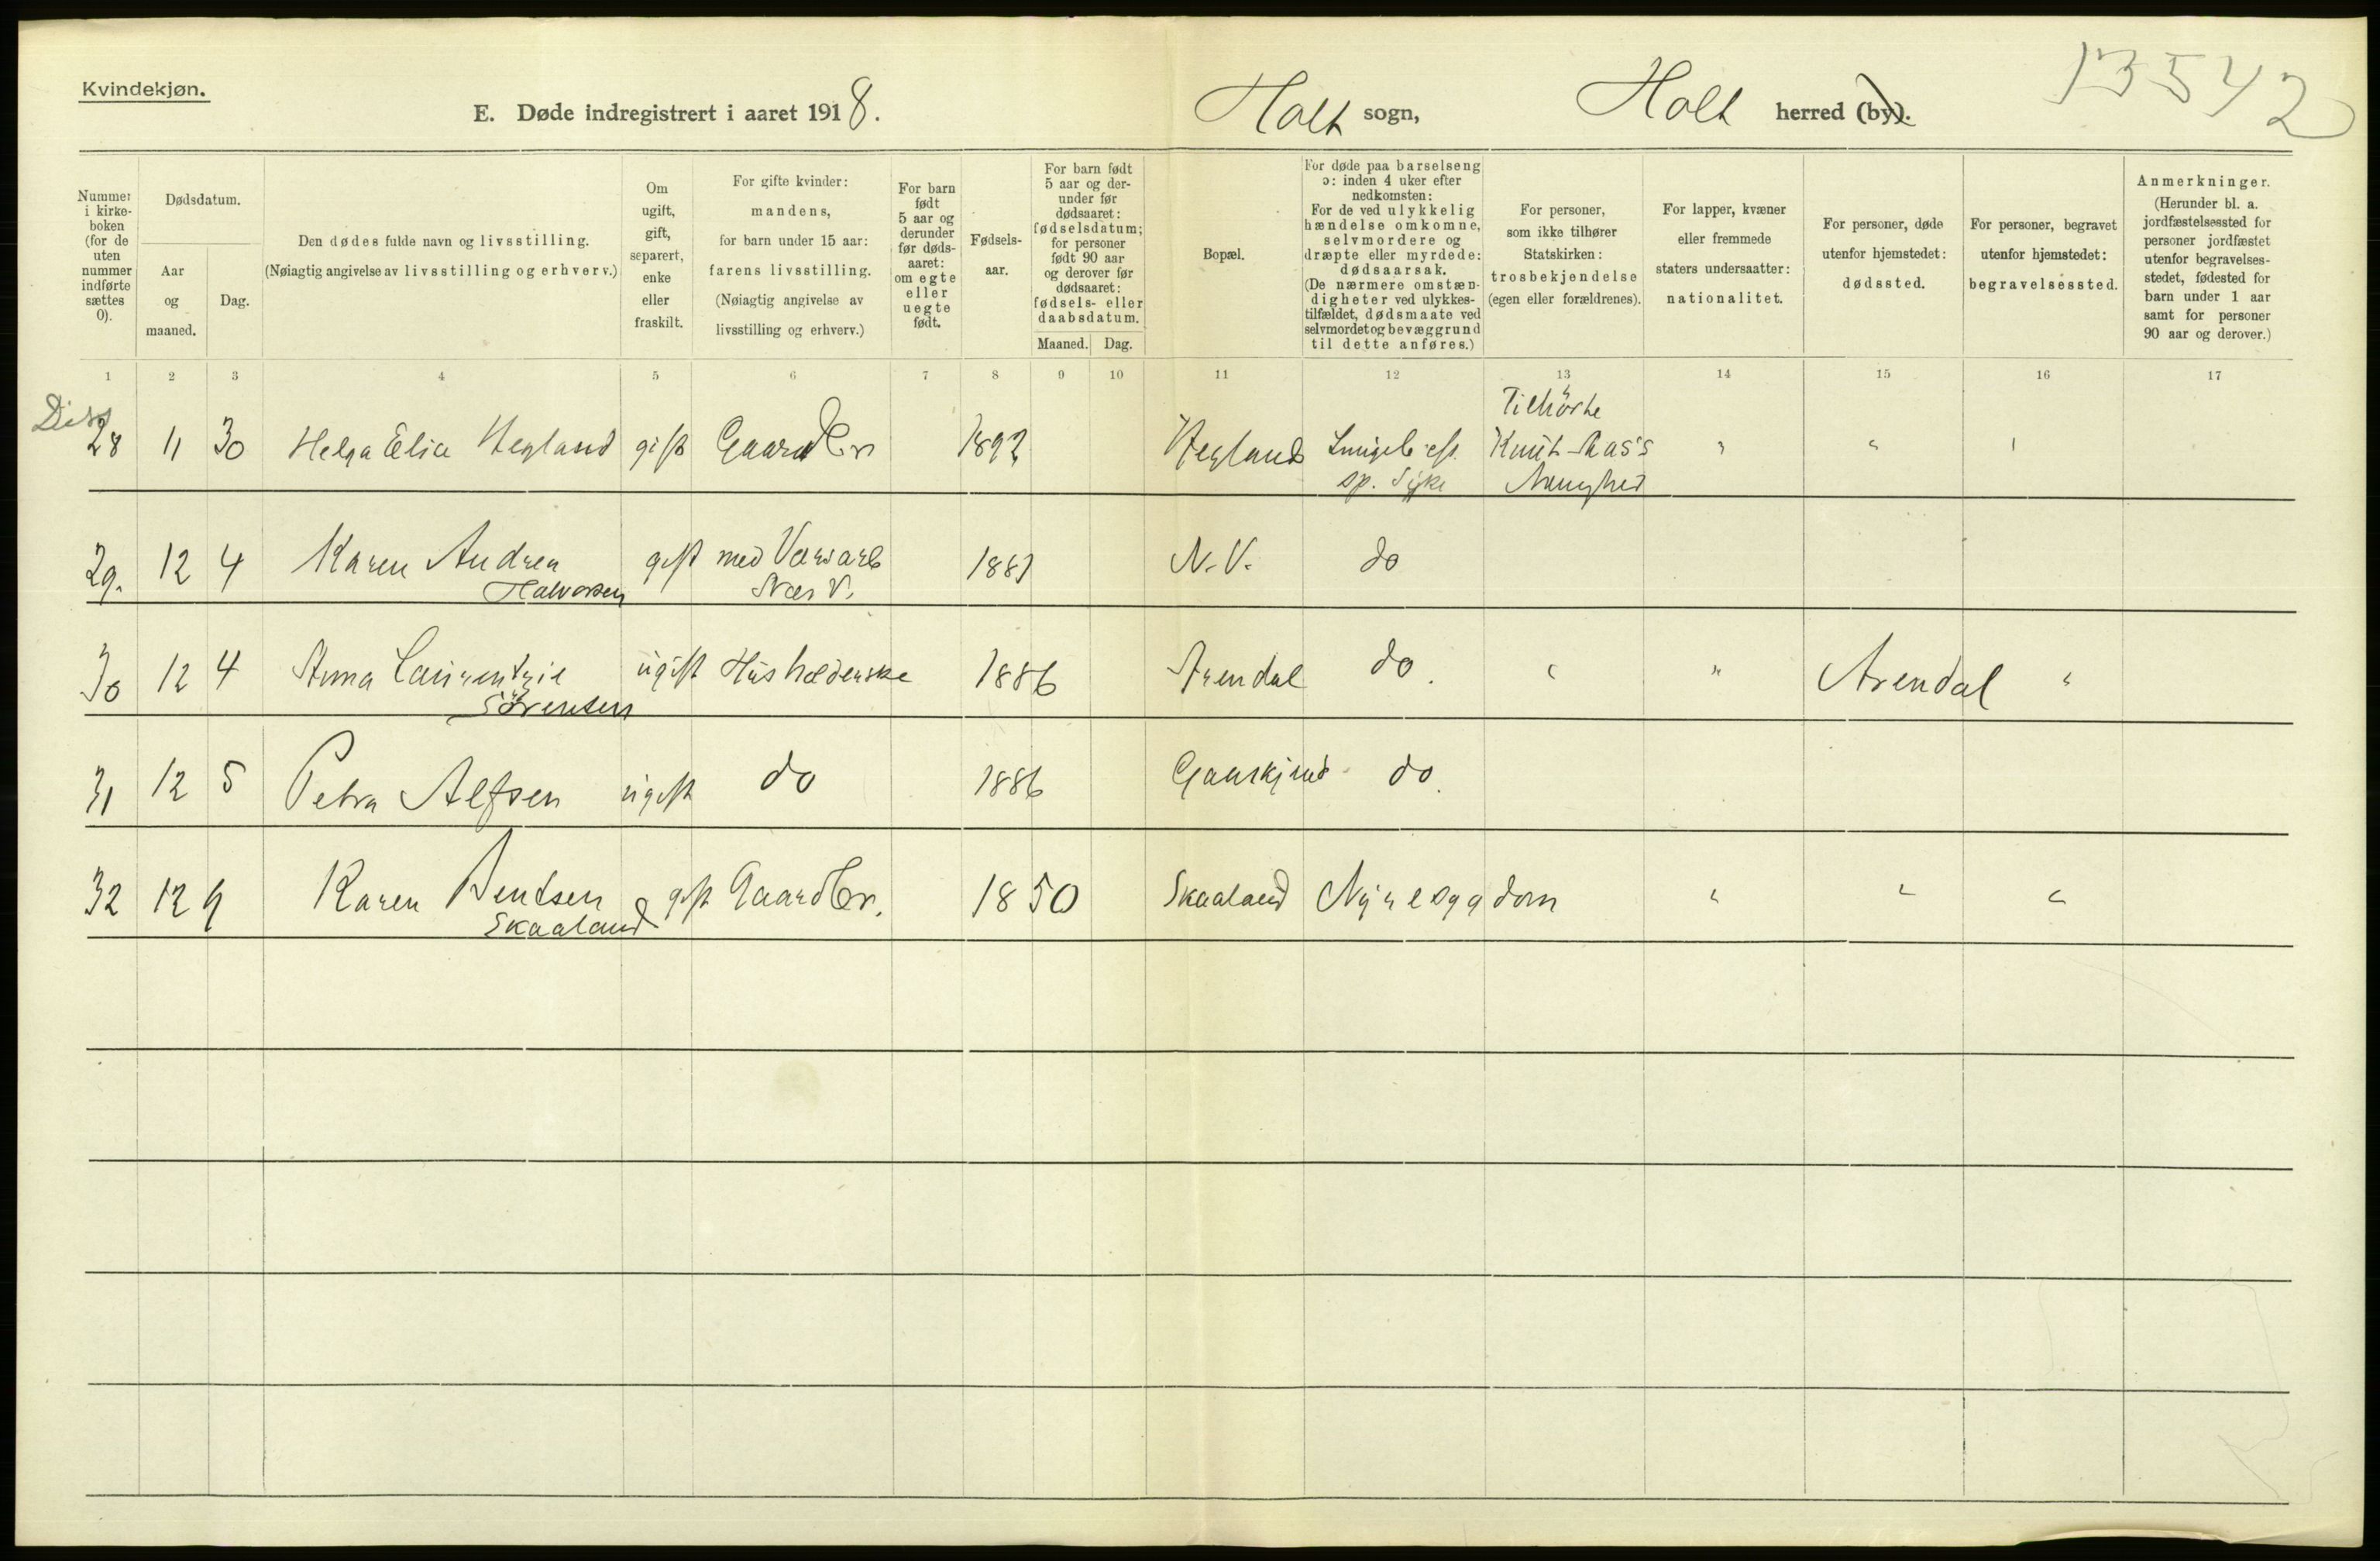 Kvindekjøn.
E. Døde indregistrert i aaret 1918.
Holt sogn,
Holt herred (by).
13542
Nummer i kirkeboken (for de uten nummer indførte sættes 0).
Dødsdatum.
Aar og maaned.
Dag.
Den dødes fulde navn og livsstilling.
(Nøiagtig angivelse av livsstilling og erhverv.)
Om ugift, gift, separert, enke eller fraskilt.
For gifte kvinder: mandens, for barn under 15 aar: farens livsstilling. (Nøiagtig angivelse av livsstilling og erhverv.)
For barn født 5 aar og derunder før dødsaaret: om egte eller uegte født.
Fødselsaar.
For barn født 5 aar og derunder før dødsaaret: fødselsdatum; for personer født 90 aar og derover før dødsaaret: fødsels- eller daabsdatum.
Maaned. Dag.
Bopæl.
For døde paa barselseng ɔ: inden 4 uker efter nedkomsten: For de ved ulykkelig hændelse omkomne, selvmordere og dræpte eller myrdede: dødsaarsak. (De nærmere omstændigheter ved ulykkestilfældet, dødsmaate ved selvmordet og bevæggrund til dette anføres.)
For personer, som ikke tilhører Statskirken: trosbekjendelse (egen eller forældrenes).
For lapper, kvæner eller fremmede staters undersaatter: nationalitet.
For personer, døde utenfor hjemstedet: dødssted.
For personer, begravet utenfor hjemstedet: begravelsessted.
Anmerkninger. (Herunder bl. a. jordfæstelsessted for personer jordfæstet utenfor begravelsesstedet, fødested for barn under 1 aar samt for personer 90 aar og derover.)
1 2 3 4 5 6 7 8 9 10 11 12 13 14 15 16 17
Diss
28 11 30 Helga Elise Hegland gift Gaardbr 1892 Hegland sp. Syke Tilhørte Knut Aas's Menighed
29. 12 4 Karen Andrea Halvorsen gift med Næs V. 1881 N. V. do
30 12 4 Anna Laurentzie Sørensen ugift Husholderske 1886 Arendal do. " " Arendal "
31 12 5 Petra Alfsen ugift do 1886 do.
32 12 9 Karen Bentsen Skaaland gift Gaardbr. 1850 Skaaland Nyresygdom " " "